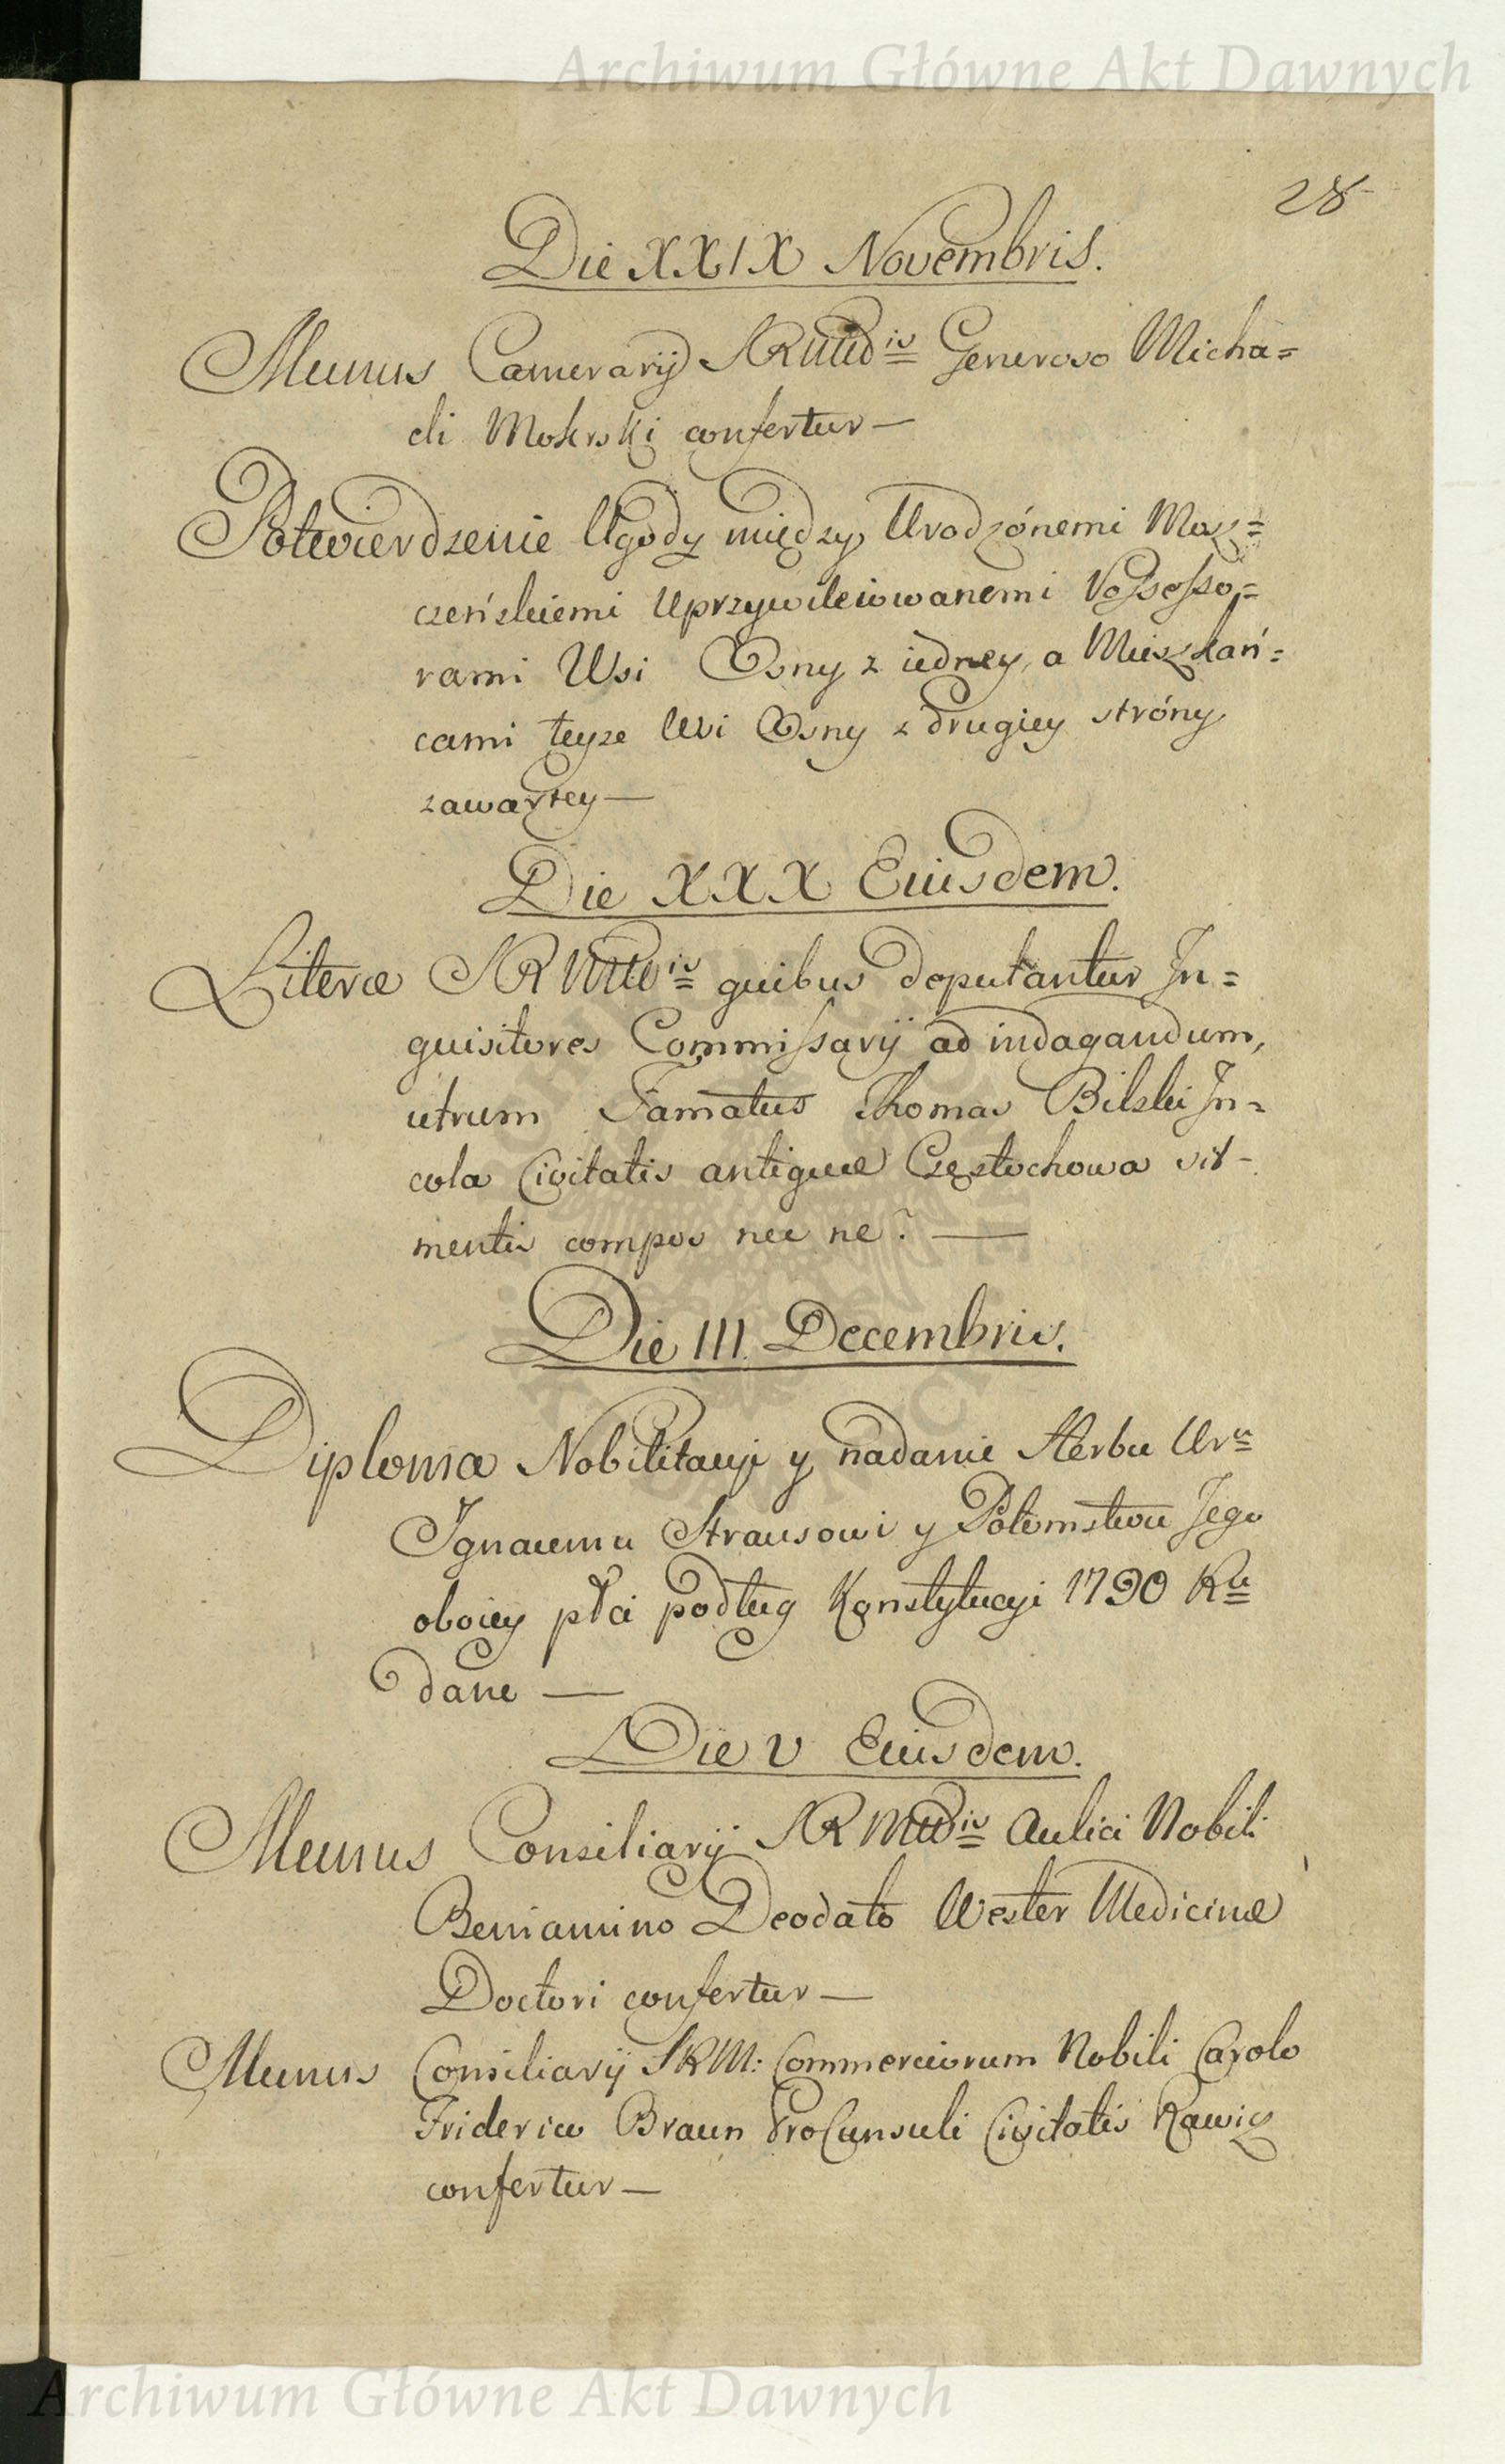 Archiwum Główne Akt Dawnych
28
Die XXIX Novembris.
Munus Camerarij SRMttis Generoso Micha=
eli Mokrski confertur —
Potwierdzenie Ugody między Urodzónemi Mosz=
czeńskiemi Uprzywileiowanemi Possesso=
rami Wsi Osny z iedney, a Mieszkań=
cami teyże Wsi Osny z drugiey stróny
zawartey —
Die XXX Eiusdem.
Literæ SRMttis quibus deputantur In=
quisitores Commissarij ad indagandum,
utrum Famatus Thomas Bilski In=
cola Civitatis antiquæ Częstochowa sit
mentis compos nec ne? —
Die III Decembris.
Diploma Nobilitacyi y nadanie Herbu Uru
Ignacemu Strausowi y Potomstwu Jego
oboiey płci podług Konstytucyi 1790 Ru
dane —
Die V Eiusdem.
Munus Consiliarij SRMttis Aulici Nobili
Beniamino Deodato Wester Medicinæ
Doctori confertur —
Munus Consiliarij SRM: Commerciorum Nobili Carolo
Friderico Braun ProConsuli Civitatis Rawicz
confertur —
Archiwum Główne Akt Dawnych